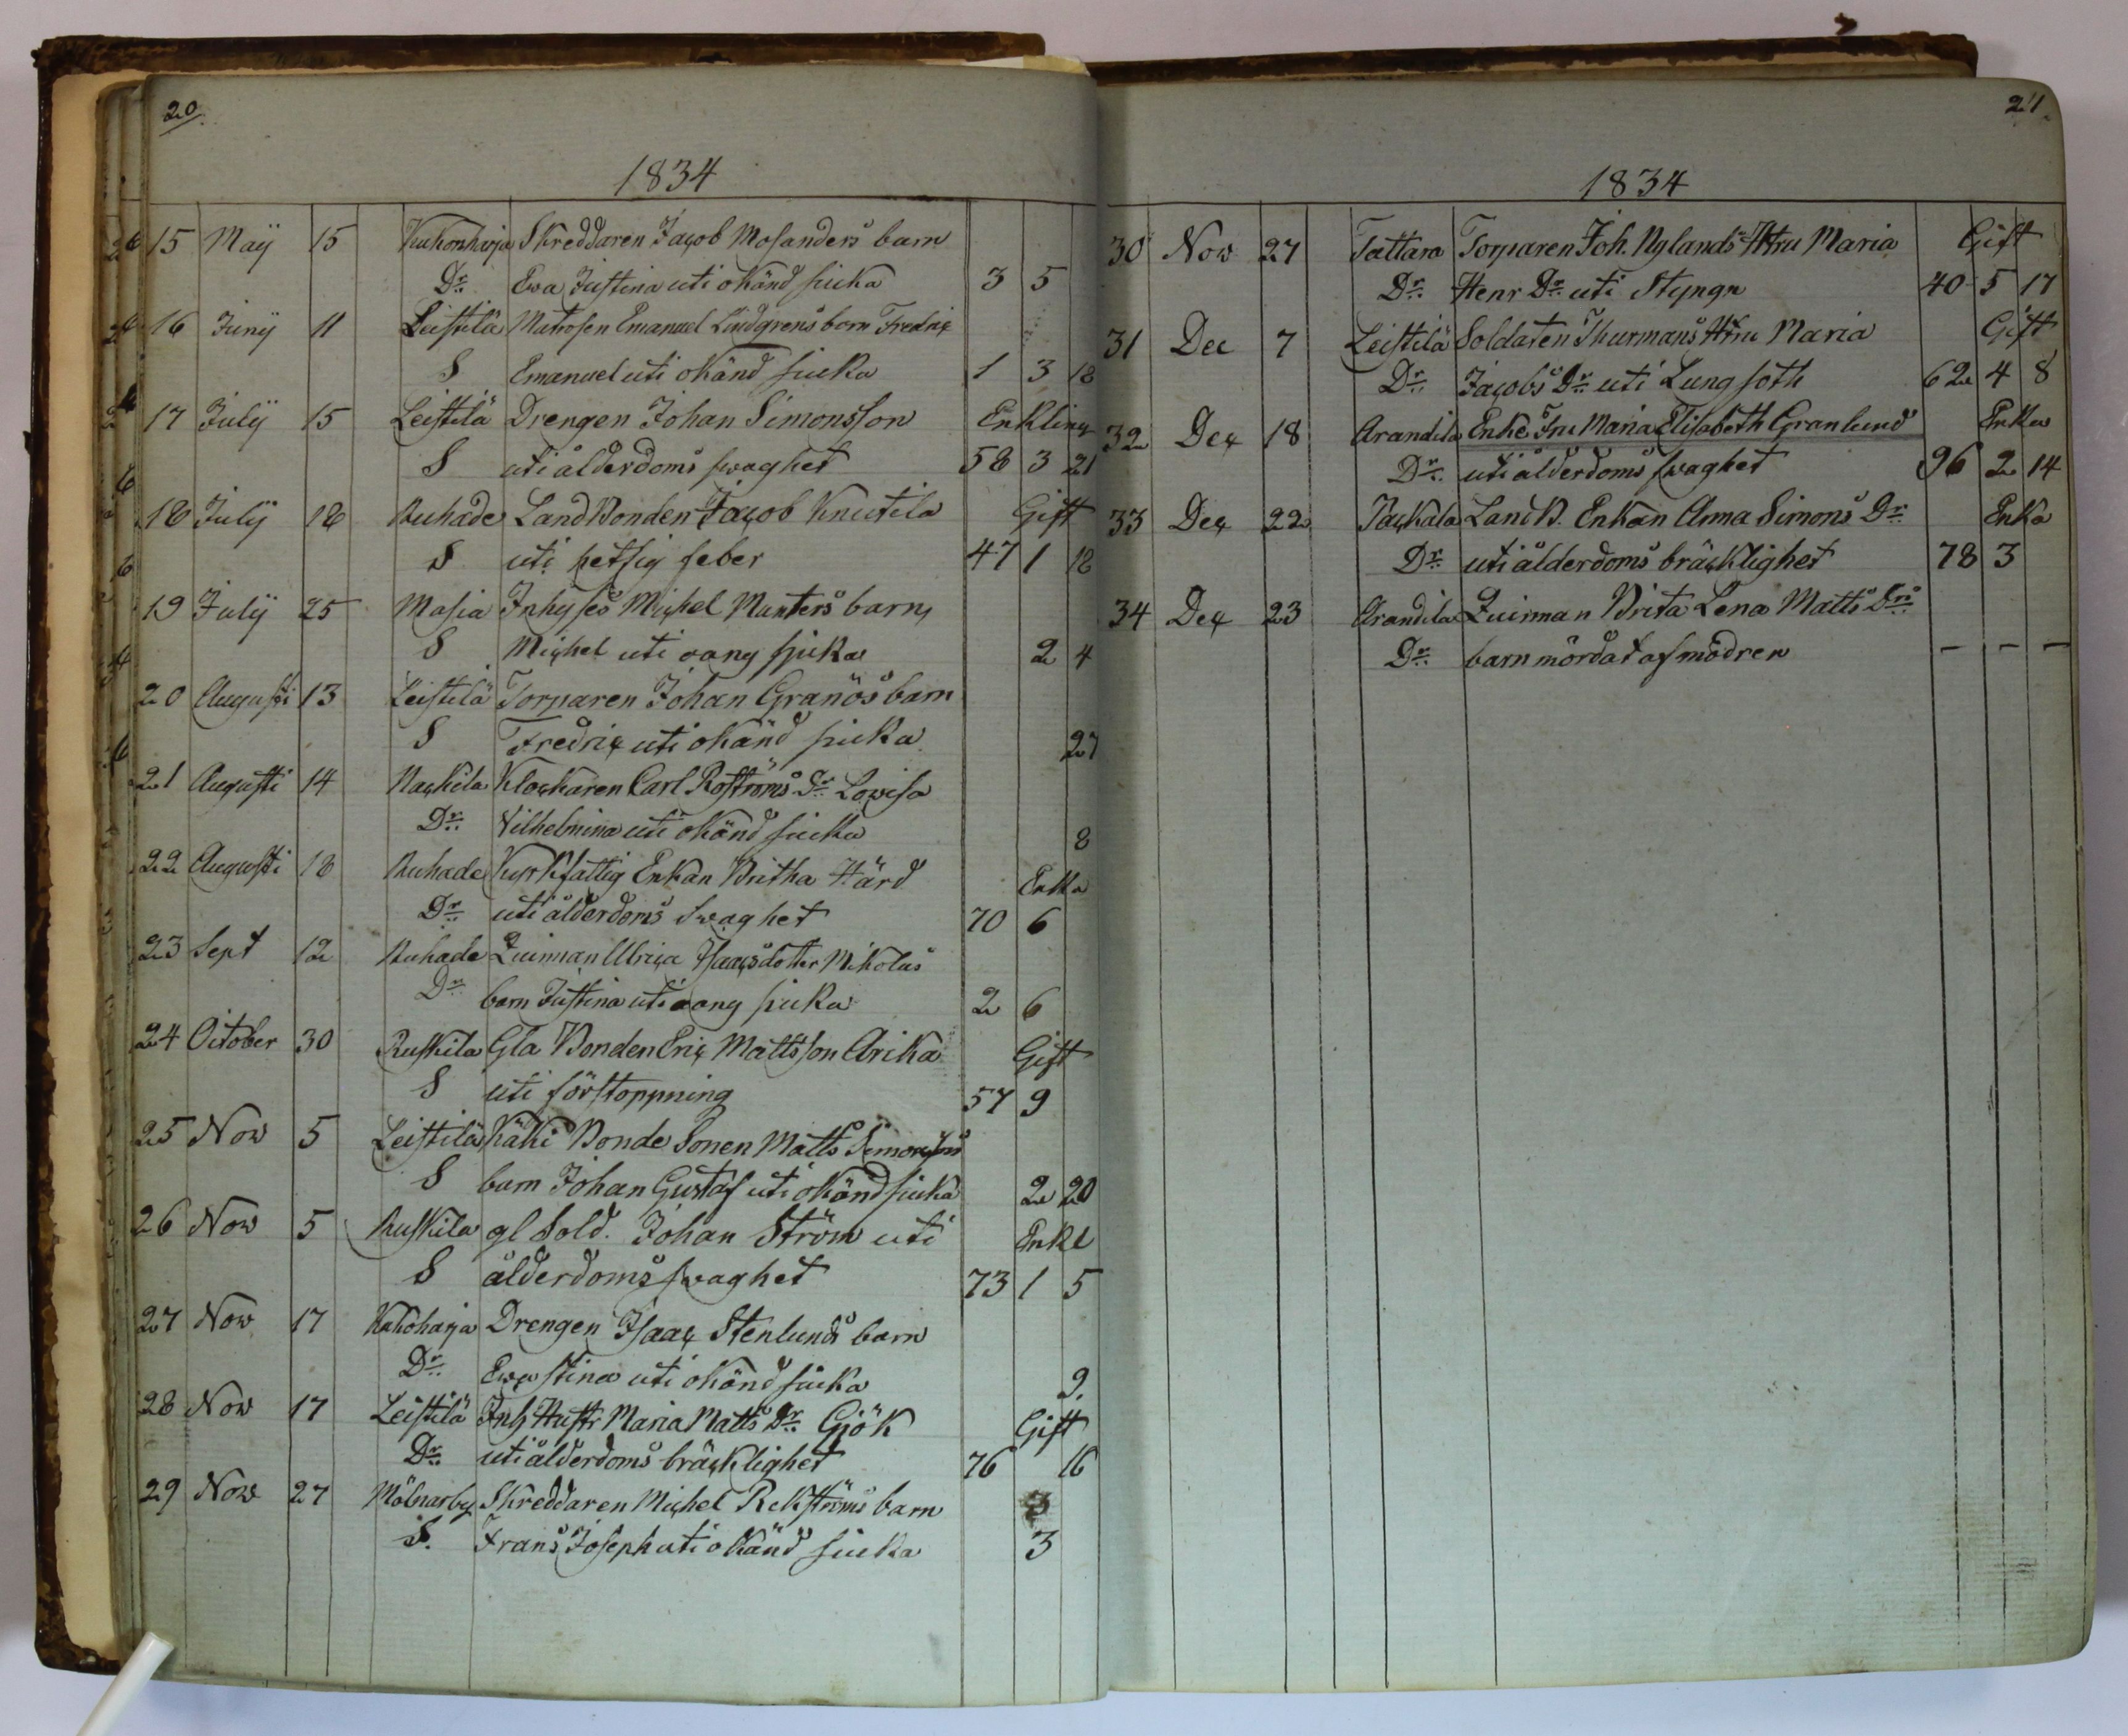 20.
1834
15 Maij 15 Kukonharja Skreddaren Jacob Mosanders barn
Dr. Ewa Justina uti okänd siuka 3 5
16 Junij 11 Leistilä Matrosen Emanuel Lindgrens barn Fredric
S Emanuel uti okänd siuka 1 3 18
17 Julij 15 Leistilä Drengen Johan Simonsson Enkling
S uti ålderdoms swaghet 58 3 21
18 Julij 18 Ruhade LandBonden Jacob Knutila Gift
S uti hetsig feber 47 1 18
19 Julij 25 Masia Inhyses Michel Munters barn
S Michel uti oang siuka 2 4
20 Augusti 13 Leistilä Torparen Johan Granös barn
S Fredric uti okänd siuka 27
21 Augusti 14 Nackila Klockaren Carl Roströms Dr Lovisa
Dr. Vilhelmina uti okänd siuka 8
22 Augusti 18 Ruhade Kyrkfattig Enkan Britha Hård Enka
Dr. uti ålderdoms Swaghet 70 6
23 Sept 12 Ruhade Quinnan Ulrica Isaacsdotter Mikolas
Dr barn Justina uti oang siuka 2 6
24 October 30 Ruskila Gla Bonden Eric Mattsson Arika Gift
S uti förstoppning 57 9
25 Nov 5 Leistilä Käki Bonde Sonen Matts Simonsons
S barn Johan Gustaf uti okänd siuka 2 20
26 Nov 5 Ruskila gl Sold. Johan Ström uti Enkl
S ålderdoms swaghet 73 1 5
27 Nov 17 Kukoharja Drengen Isaac Stenlunds barn
Dr. Ewastina uti okänd siuka 9.
28 Nov 17 Leistilä Inh Hustr Maria Matts Dr. Gjök Gift
Dr. uti ålderdoms bräcklighet 76 16
29 Nov 27 Mölnarby Skreddaren Michel Rekströms barn
S. Frans Joseph uti okänd siuka 3
21.
1834
30 Nov 27 Tattara Torparen Joh. Nylands Hru Maria Gift
Dr. Henr Dr. uti Styngn 40 5 17
31 Dec 7 Leistilä Soldaten Thurmans Hru Maria Gift
Dr. Jacobs Dr. uti Lungsoth 62 4 8
32 Dec 18 Arandila Enke Fru Maria Elisabeth Granlund Enka
Dr. uti ålderdoms swaghet 96 2 14
33 Dec 22 Jackala LandB. Enkan Anna Simons Dr. Enka
Dr. uti ålderdoms bräcklighet 78 3
34 Dec 23 Arandila Quinnan Brita Lena Matts Drs
Dr. barn mördat af modren — — —